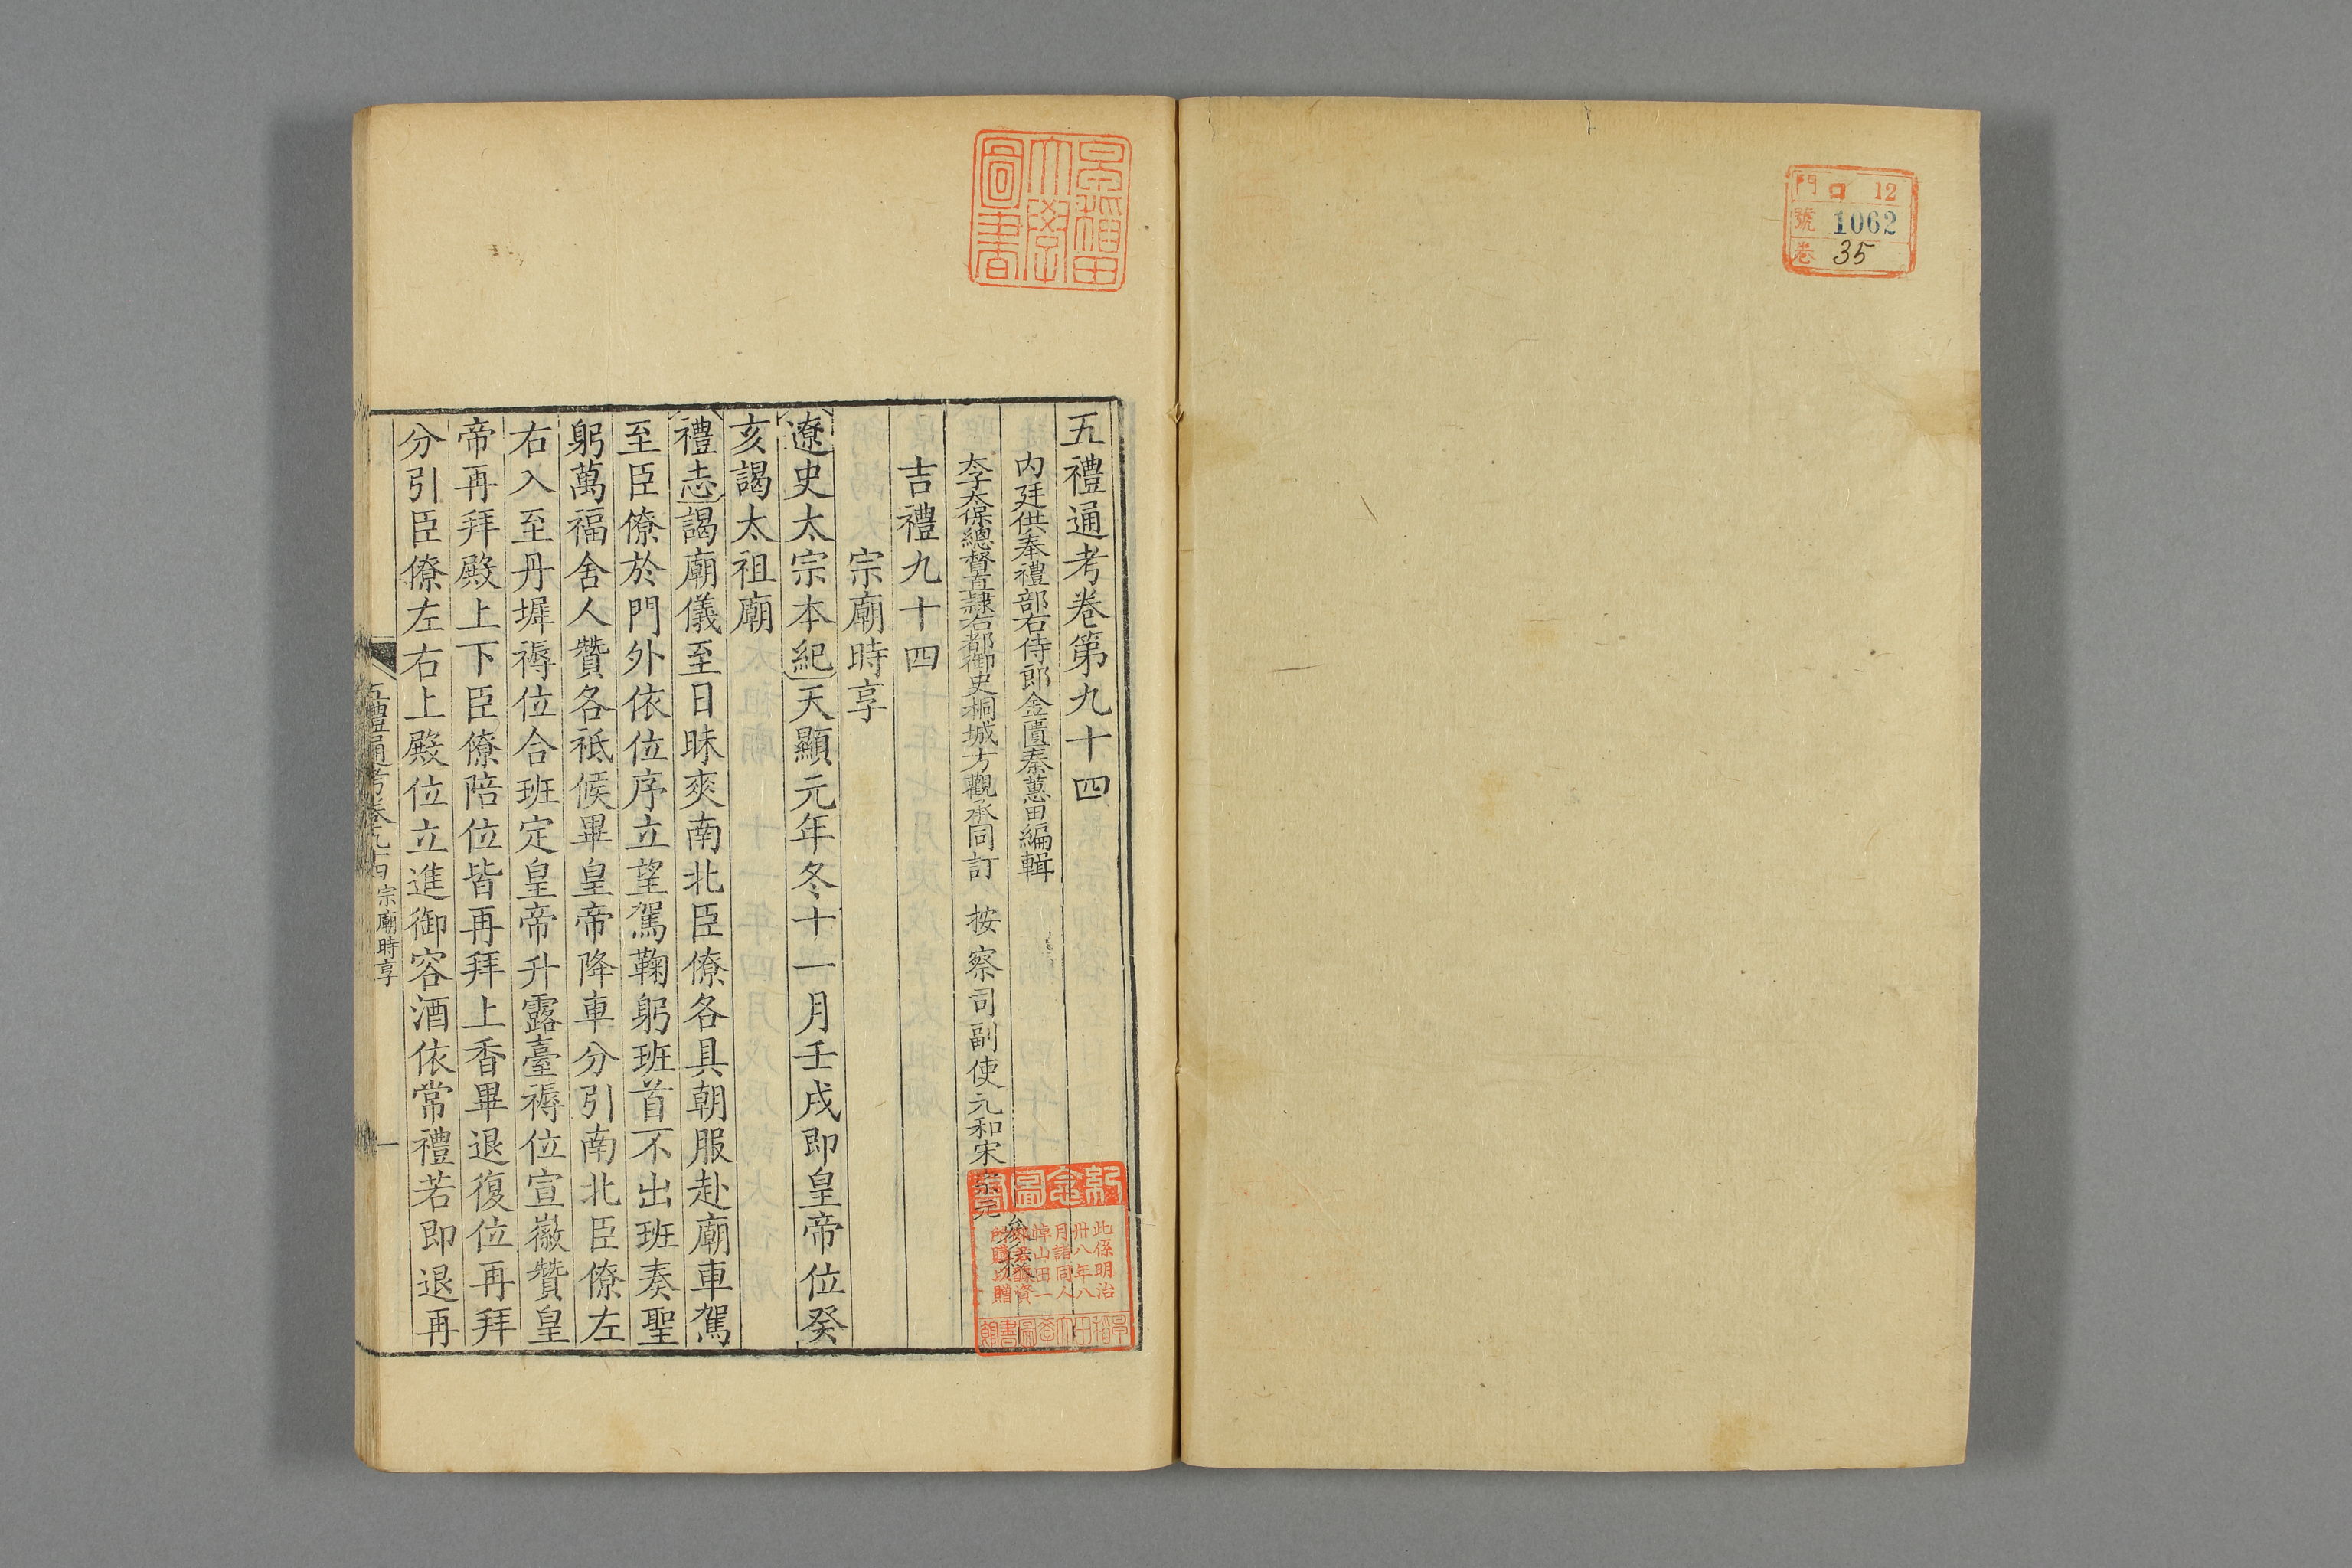 門 口 12
號 1062
卷 35
早稻田
大學
圖書
五禮通考卷第九十四
内廷供奉禮部右侍郎金匱秦蕙田編輯
太子太保總督直隸右都御史桐城方觀承同訂 按察司副使元和宋宗元 參校
吉禮九十四
宗廟時享
遼史太宗本紀天顯元年冬十一月壬戌即皇帝位癸
亥謁太祖廟
禮志謁廟儀至日昧爽南北臣僚各具朝服赴廟車駕
至臣僚於門外依位序立望駕鞠躬班首不出班奏聖
躬萬福舍人贊各祗候畢皇帝降車分引南北臣僚左
右入至丹墀褥位合班定皇帝升露臺褥位宣徽贊皇
帝再拜殿上下臣僚陪位皆再拜上香畢退復位再拜
分引臣僚左右上殿位立進御容酒依常禮若即退再
五禮通考卷九十四 宗廟時享 一
紀念圖書
此係明治
卅八年八
月諸同人
悼山田一
所購以贈
早稻田大學圖書館